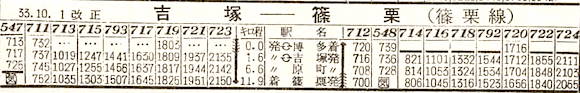 33.10.1 改正 吉塚——篠栗 (篠栗線)
547 711 713 715 793 717 719 721 723 キロ程 駅名 712 548 714 716 718 720 722 724
713 732 … … … … 1803 … … 0.0 発博多着 720 739 … … … 1716 … …
717 737 1019 1247 1441 1630 1809 1937 2135 1.6 〃吉塚発 716 736 821 1101 1332 1544 1712 1855 2111
725 745 1027 1255 1456 1637 1817 1944 2142 6.6 〃原町〃 708 728 814 1053 1324 1554 1704 1848 2103
図 752 1035 1303 1507 1645 1825 1951 2150 11.9 着篠栗発 700 図 806 1045 1316 1523 1656 1840 2055